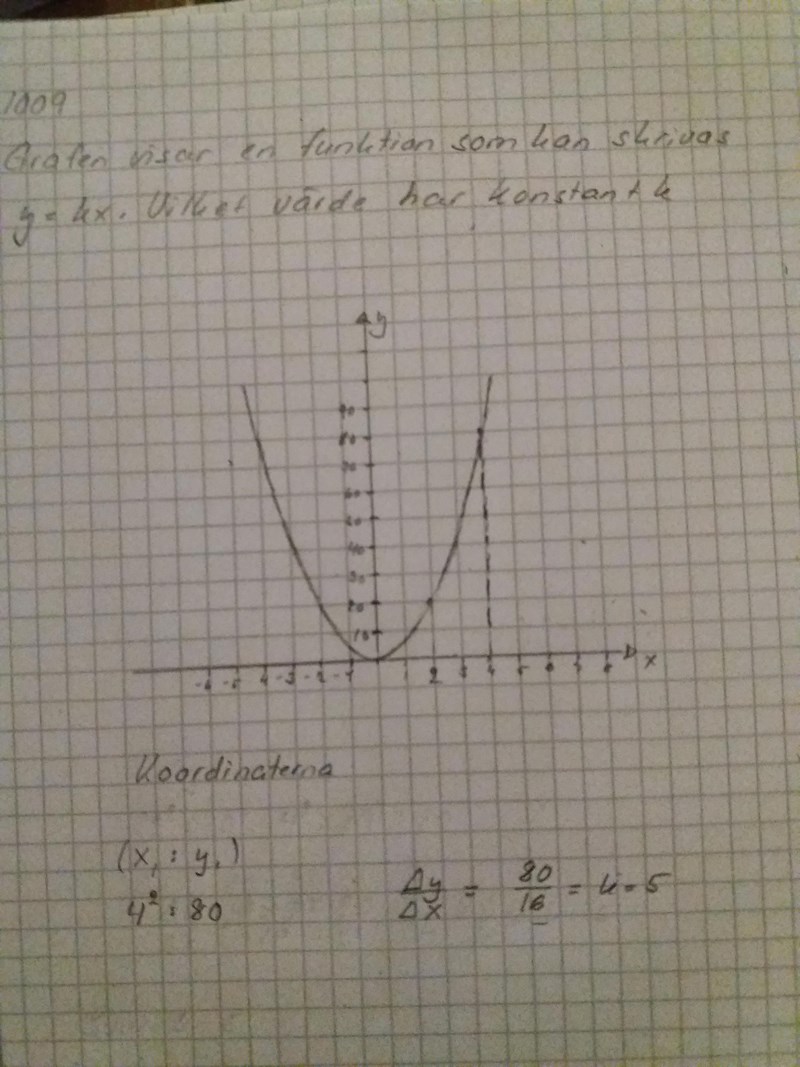 1009
Grafen visar en funktion som kan skrivas
y = kx. Vilket värde har konstant k
y
90
80
70
60
50
40
30
20
10
-6 -5 4 -3 -2 -1 1 2 3 4 5 6 7 8 x
Koordinaterna
(x₁ : y₁)
4² : 80
Δy/Δx = 80/16 = k = 5